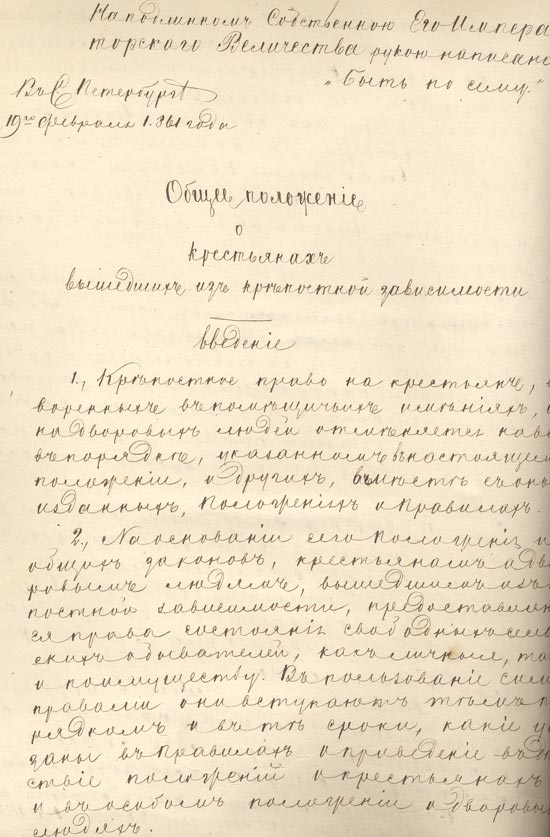 На подлинномъ Собственною Его Импера
торскаго Величества рукою написано
„Быть по сему.“
Въ С. Петербургѣ
19го февраля 1861 года
Общее положеніе
о
крестьянахъ
вышедшихъ изъ крѣпостной зависимости
введеніе
1., Крѣпостное право на крестьянъ,
воренныхъ въ помѣщичьихъ имѣніяхъ,
на дворовыхъ людей отмѣняется нав
въ порядкѣ, указанномъ въ настоящемъ
положеніи, и другихъ, вмѣстѣ съ он
изданныхъ, положеніяхъ и правилахъ.
2., На основаніи сего положенія и
общихъ законовъ, крестьянамъ и дво
ровымъ людямъ, вышедшимъ изъ
постной зависимости, предоставляю
ся права состоянія свободныхъ сель
скихъ обывателей, какъ личныя, та
и по имуществу. Въ пользованіе сими
правами они вступаютъ тѣмъ п
рядкомъ и въ тѣ сроки, какіе ук
заны въ правилахъ о приведеніе въ
ствіе положеній о крестьянахъ
и въ особомъ положеніи о дворовых
людяхъ.